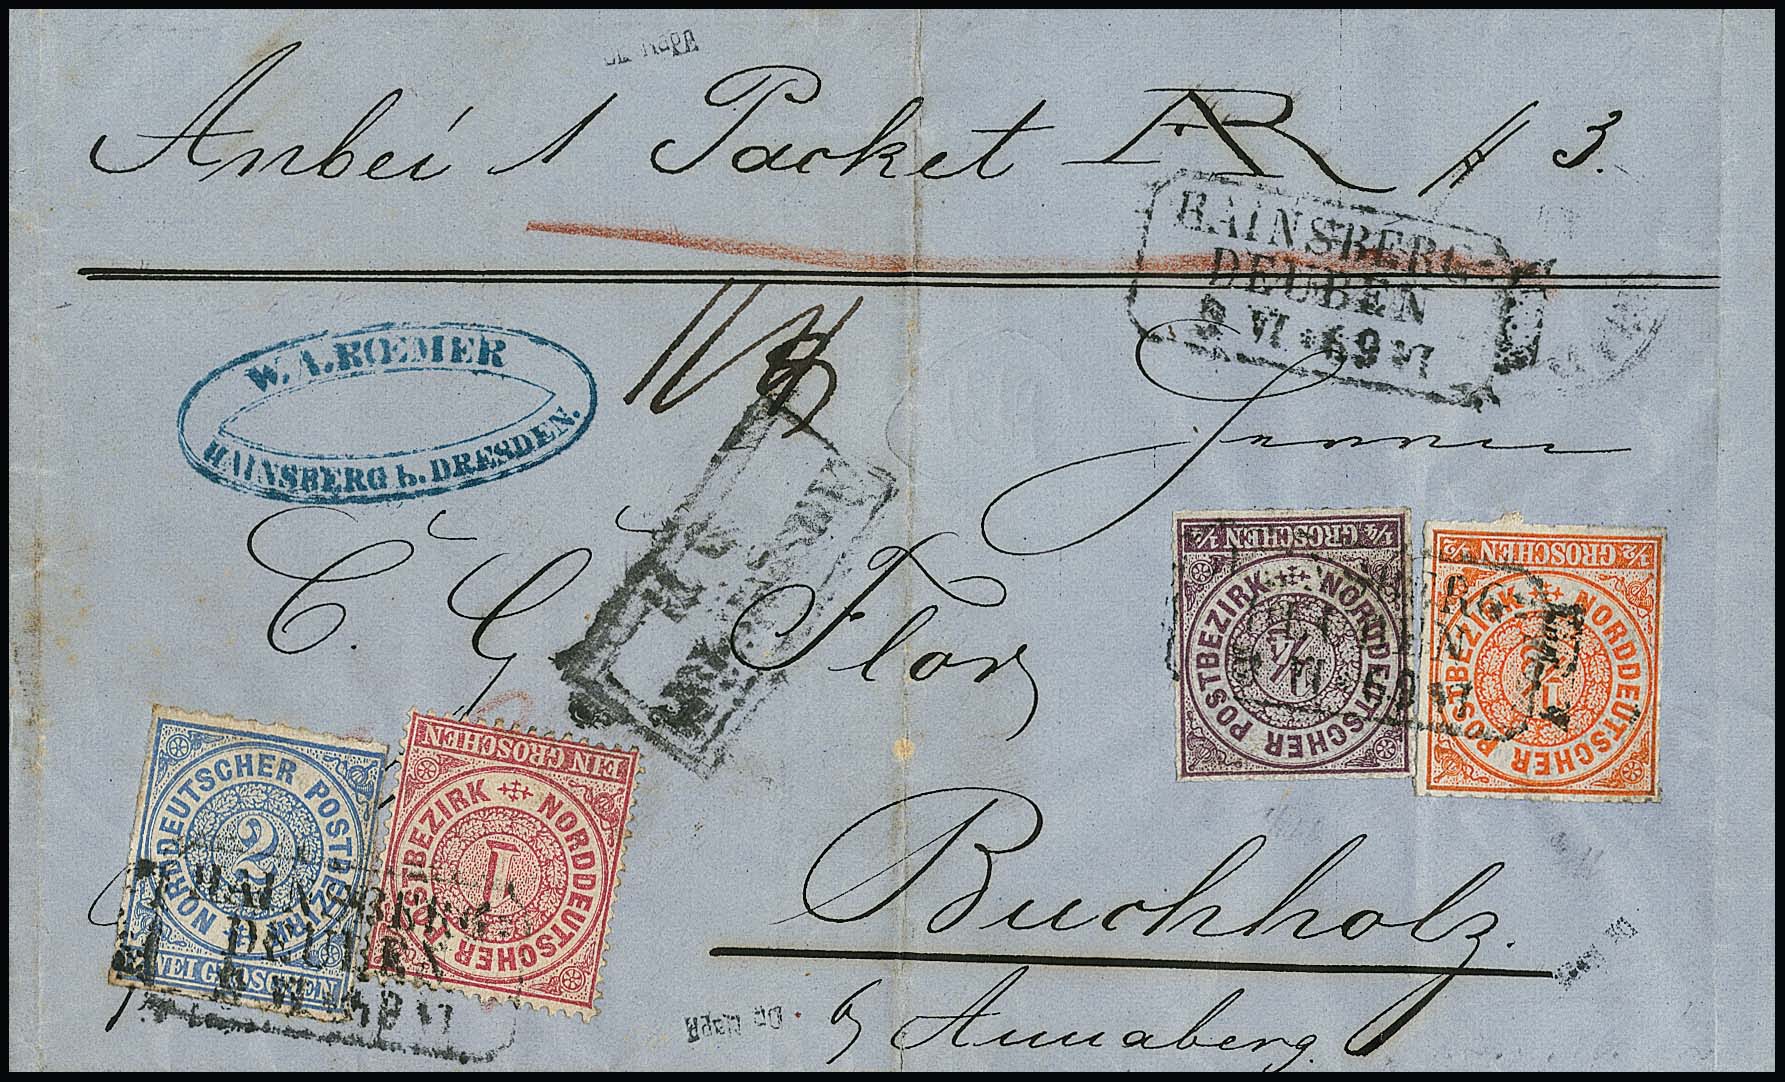 Anbei 1 Packet AR # 3.
HAINSBERG-
DEUBEN
VI 69
W. A. RŒMER
HAINSBERG b. DRESDEN.
Herrn
C. G. Flor
¼ GROSCHEN ¼
NORDDEUTSCHER POSTBEZIRK
¼
½ GROSCHEN ½
NORDDEUTSCHER POSTBEZIRK
½
NORDDEUTSCHER POSTBEZIRK
2
ZWEI GROSCHEN
EIN GROSCHEN
NORDDEUTSCHER POSTBEZIRK
1
HAINSBERG-
DEUBEN
Buchholz.
b/ Annaberg.